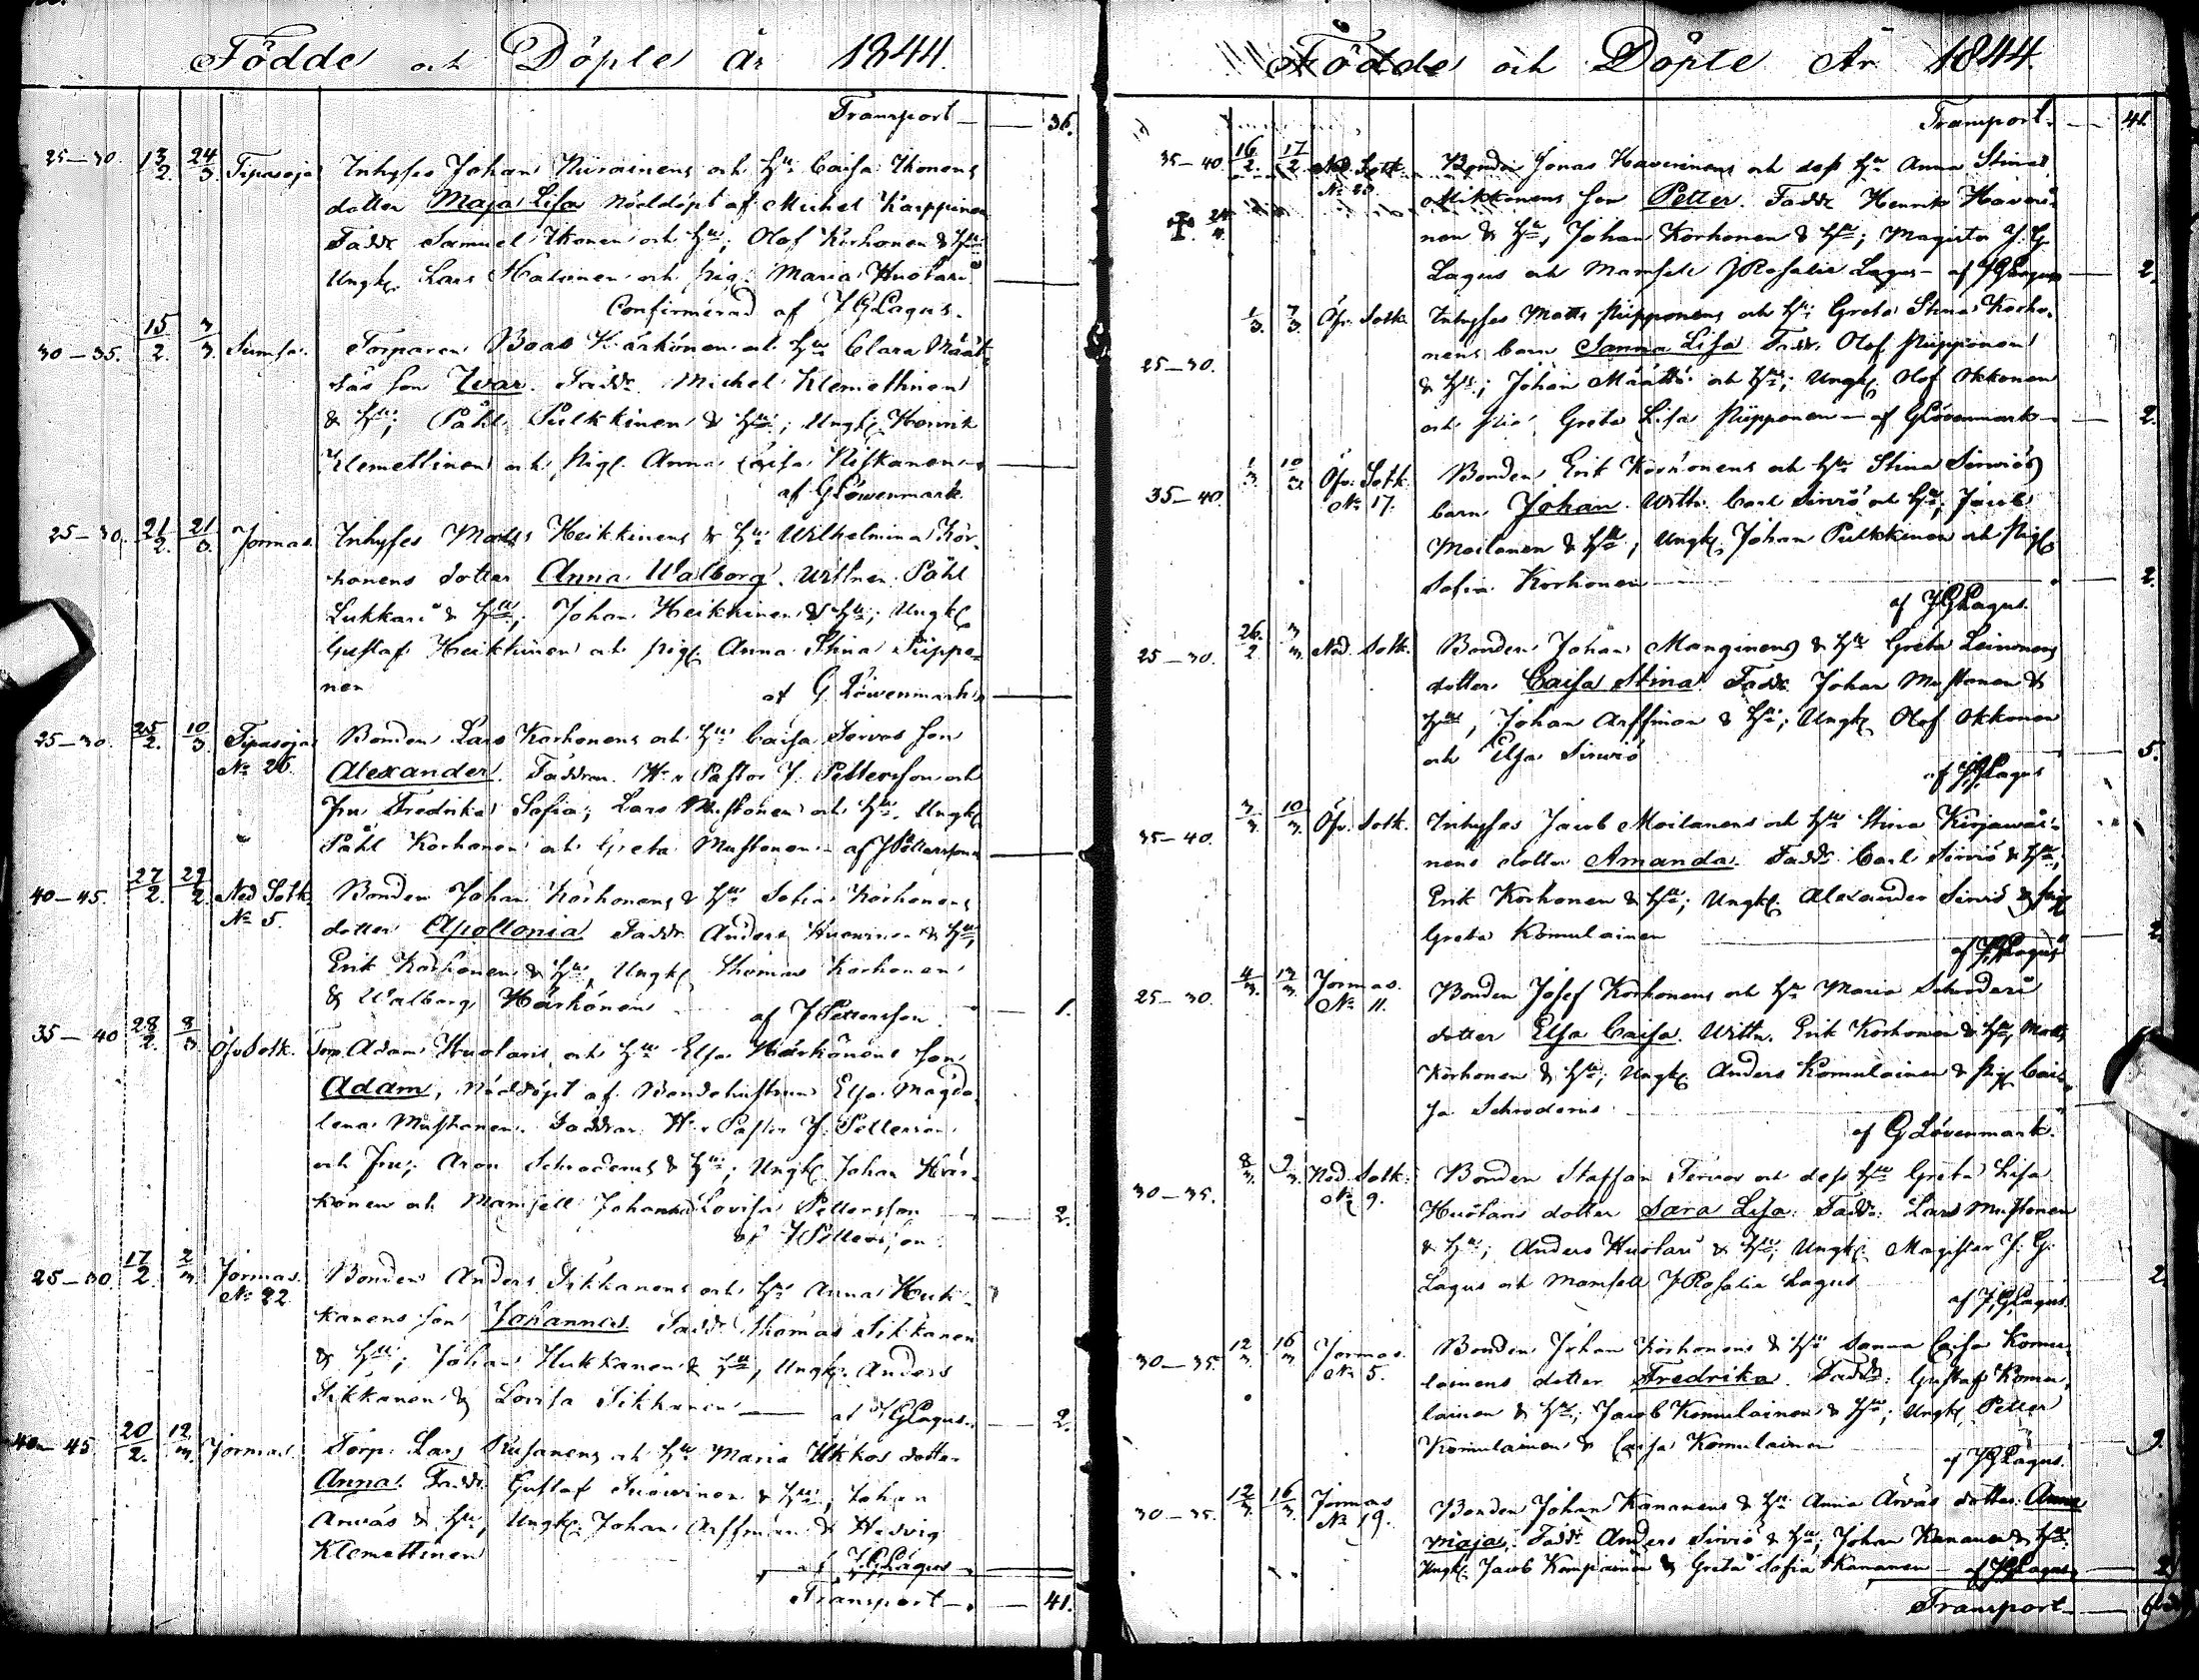 Födde och Döpte År 1844.
Transport — 36.
25—30. 13/2. 24/3. Tipasoja Inhyses Johan Nivainens och Hu: Caisa Ikonens
dotter Maja Lisa nöddöpt af Michel Karppinen
Fadd: Samuel Ikonen och Hu; Olof Korhonen & Hu
Ungk. Lars Halonen och pig. Maria Huotari
Confirmerad af J G Lagus.
30—35. 15/2. 3/3. Sumsa. Torparen Boas Härkönen och Hu Clara Määt-
täs son Ivar. Fadd: Michel Klemettinen
& Hu; Påhl Pulkkinen & Hu; Ungk. Henrik
Klemettinen och Pig. Anna Caisa Niskanen —
af G Löwenmark
25—30. 21/2. 21/3. Jormas. Inhyses Matts Heikkinens & Hu Wilhelmina Kor-
honens dotter Anna Walborg. Wittnen Påhl
Lukkari & Hu; Johan Heikkinen & Hu; Ungk.
Gustaf Heikkinen och pig. Anna Stina Piippo-
nen af G Löwenmark
25—30. 25/2. 10/3. Tipasoja Bonden Lars Korhonens och Hu Caisa Servos son
No 26. Alexander. Faddrar H:r Pastor J. Pettersson och
Fru Fredrika Sofia; Lars Mustonen och Hu. Ungk.
Påhl Korhonen och Greta Mustonen — af J Pettersson
40—45. 27/2. 29/2. Ned Sotk. Bonden Johan Korhonens & Hu Sofia Korhonens
No 5. dotter Apollonia Fadd: Anders Huovinen & Hu,
Erik Korhonen & Hu, Ungk. Thomas Korhonen
& Walborg Härkönen af J Pettersson — 1.
35—40 28/2. 8/3. Öfv Sotk. Torp. Adam Huotaris och Hu Elsa Härkönens son
Adam, nöddöpt af Bondehustrun Elsa Magda-
lena Mustonen. Faddrar H:r Pastor J. Petterson
och Fru; Aron Schroderus & Hu; Ungk. Johan Här-
könen och Mamsell Johanna Lovisa Pettersson — 2.
af J Pettersson.
25—30 17/2. 2/3. Jormas. Bonden Anders Sikkanens och Hu Anna Huk-
No 22. kanens son Johannes. Fadd: Thomas Sikkanen
& Hu; Johan Hukkanen & Hu, Ungk. Anders
Sikkanen & Lovisa Sikkanen — af J G Lagus. — 2.
40—45. 20/2. 12/3. Jormas. Torp. Lars Kusanens och Hu Maria Ukkos dotter
Anna. Fadd: Gustaf Suovinen & Hu, Johan
Arvås & Hu, Ungk. Johan Arffman & Hedvig
Klemettinen
af J G Lagus
Transport — 41.
Födde och Döpte År 1844.
Transport. — 41.
35—40 16/2. 17/2 Ned. Sotk. Bonden Jonas Haverinens och dess Hu Anna Stina
No 20. Mikkonens son Petter. Fadd: Henrik Haveri-
nen & Hu, Johan Korhonen & Hu; Magister J. G.
Lagus och Mamsell J Rosalie Lagus — af J G Lagus — 2.
1/3. 3/3. Öfv. Sotk. Inhyses Matts Piipponens och Hu Greta Stina Korho-
25—30. nens barn Sanna Lisa Fadd: Olof Piipponen
& Hu; Johan Määttä och Hu; Ungk. Olof Okkonen
och Pig. Greta Lisa Piipponen — af G Löwenmark — 2.
35—40. 1/3. 10/3. Öfv. Sotk. Bonden Erik Korhonens och Hu Stina Sirviös
No 17. barn Johan. Wittn. Carl Sirviö och Hu, Jacob
Moilanen & Hu; Ungk. Johan Pulkkinen och Pig.
Sofia Korhonen — 2.
af J G Lagus.
25—30. 26/2. 3/3. Ned. Sotk. Bonden Johan Manginens & Hu Greta Leinonens
dotter Caisa Stina. Fadd: Johan Mustonen &
Hu, Johan Arffman & Hu; Ungk. Olof Okkonen
och Elsa Sirviö — 5.
af J G Lagus
35—40. 3/3. 10/3. Öfv. Sotk. Inhyses Jacob Moilanens och Hu Stina Kirjawai-
nens dotter Amanda. Fadd: Carl Sirviö & Hu;
Erik Korhonen & Hu; Ungk. Alexander Sirviö & pig.
Greta Komulainen — 2.
af J G Lagus
25—30. 4/3. 12/3. Jormas. Bonden Josef Korhonens och Hu Maria Schroderi
No 11. dotter Elsa Caisa. Wittn. Erik Korhonen & Hu, Matts
Korhonen & Hu; Ungk. Anders Komulainen & Pig. Cai-
sa Schroderus
af G Lövenmark.
30—35. 8/3. 9/3. Ned. Sotk. Bonden Staffan Tervos och dess Hu Greta Lisa
No 9. Huotaris dotter Sara Lisa. Fadd: Lars Mustonen
& Hu; Anders Huotari & Hu; Ungk. Magister J. G.
Lagus och Mamsell J Rosalie Lagus — 2.
af J. G Lagus.
30—35. 12/3. 16/3. Jormas. Bonden Johan Korhonens & Hu Sanna Caisa Komu-
No 5. lainens dotter Fredrika. Fadd: Gustaf Komu-
lainen & Hu; Jacob Komulainen & Hu; Ungk. Petter
Komulainen & Caisa Komulainen — 9.
af J G Lagus.
30—35. 12/3. 16/3. Jormas Bonden Johan Kananens & Hu Anna Arvås dotter Anna
No 19. Maja. Fadd: Anders Sirviö & Hu; Johan Kananen & Hu
Ungk. Jacob Kompainen & Greta Sofia Kananen — af J G Lagus — 2.
Transport —